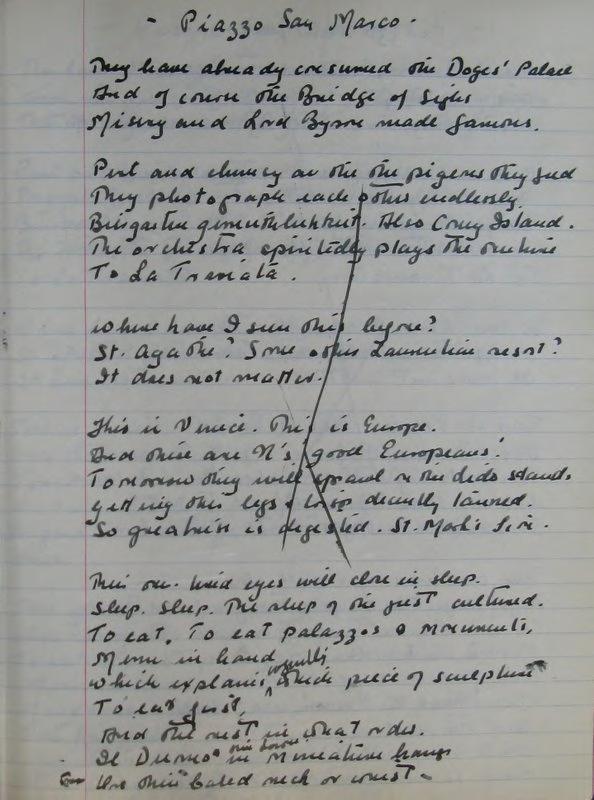 - Piazzo San Marco -
They have already consumed the Doges' Palace
And of course the Bridge of Sighs
Misery and Lord Byron made famous.
Pert and clumsy as the the pigeons they feed
They photograph each other endlessly.
Biergarten gemuthlichkeit. Also Coney Island.
The orchestra spiritedly plays the overture
To La Traviata.
Where have I seen this before?
St. Agathe? Some other Laurentian resort?
It does not matter.
This is Venice. This is Europe.
And these are N's 'good Europeans'.
Tomorrow they will sprawl on the Lido sands
getting their legs & decently tanned.
So greatness is digested. St. Mark's
Their eyes will close in sleep.
Sleep. Sleep. The sleep of the just cultured.
To eat. To eat palazzos & monuments,
Menu in hand
which explains which piece of sculpture
To eat first,
And the rest in what order.
Il Duomo in miniature hangs
neck or wrist.